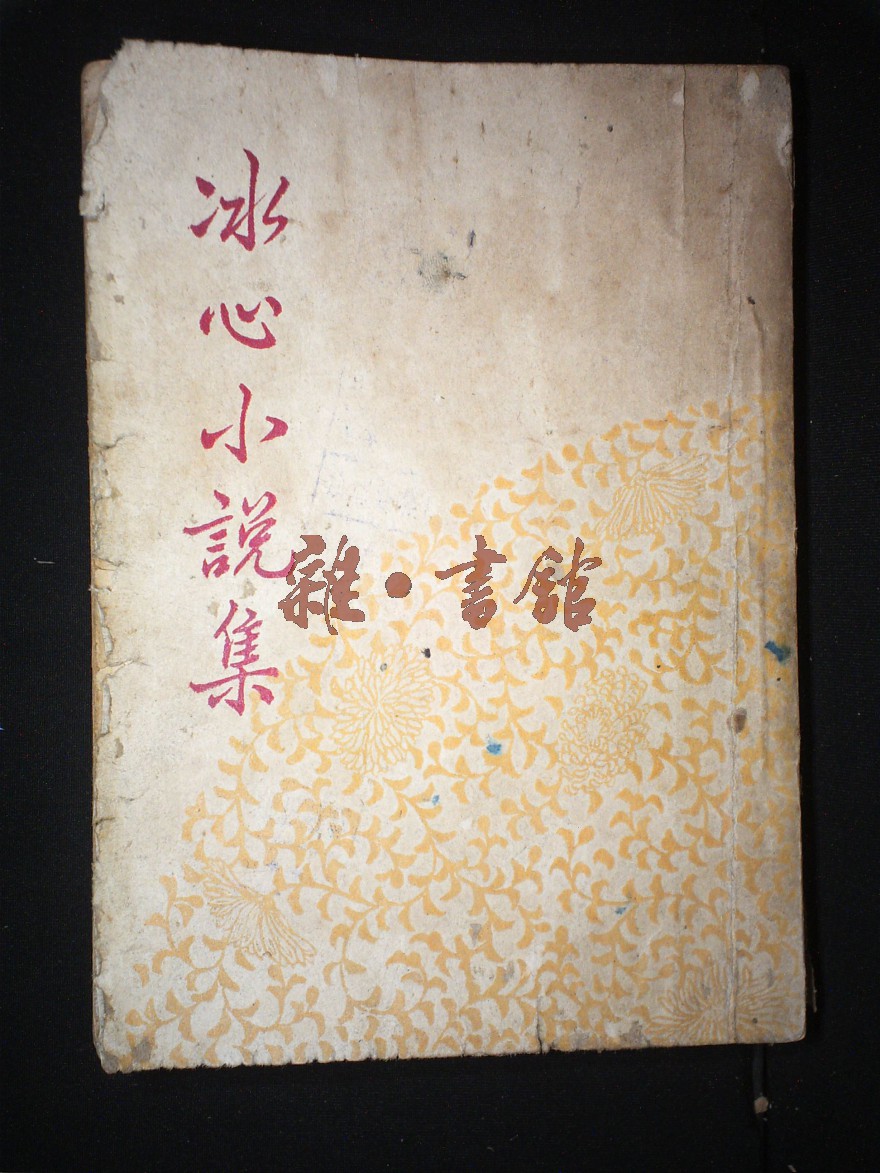 冰心小說集
雜•書館